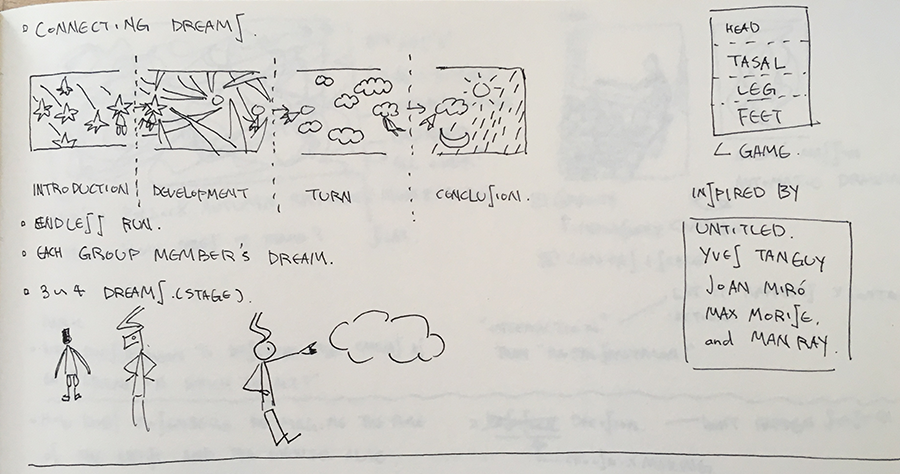 CONNECTING DREAMS.
INTRODUCTION
DEVELOPMENT
TURN
CONCLUSION.
ENDLESS RUN.
EACH GROUP MEMBER'S DREAM.
3 4 DREAMS.(STAGE).
HEAD
TASAL
LEG
FEET
GAME.
INSPIRED BY
UNTITLED.
YVES TANGUY
JOAN MIRÓ
MAX MORISE,
and MAN RAY.